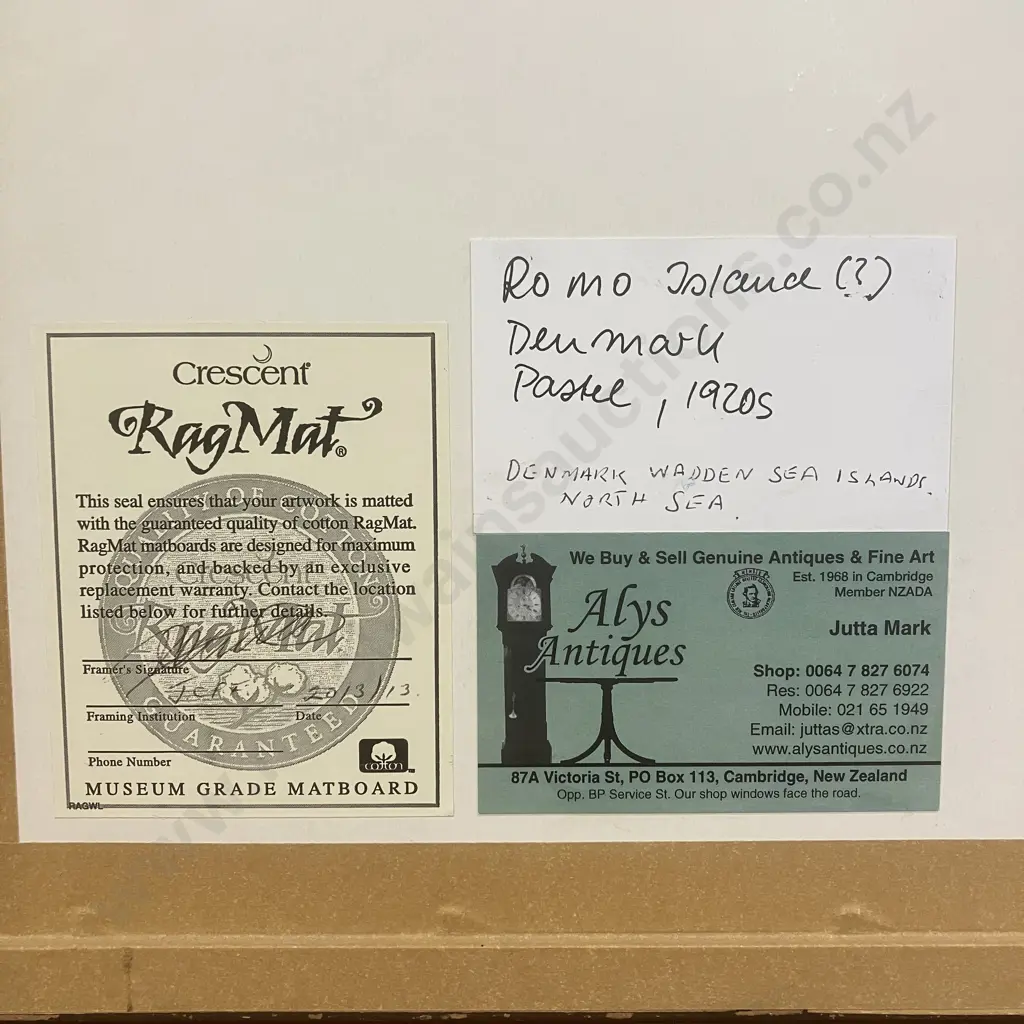 Crescent
RagMat®
This seal ensures that your artwork is matted
with the guaranteed quality of cotton RagMat.
RagMat matboards are designed for maximum
protection, and backed by an exclusive
replacement warranty. Contact the location
listed below for further details.
QUALITY OF COTTON
Crescent
RagMat
GUARANTEED
Framer's Signature
20/3/13.
Framing Institution Date
Phone Number
cotton
MUSEUM GRADE MATBOARD
RAGWL
Romo Island (?)
Denmark
Pastel, 1920s
DENMARK WADDEN SEA ISLANDS.
NORTH SEA.
We Buy & Sell Genuine Antiques & Fine Art
Est. 1968 in Cambridge
Member NZADA
Alys
Antiques
Jutta Mark
Shop: 0064 7 827 6074
Res: 0064 7 827 6922
Mobile: 021 65 1949
Email: juttas@xtra.co.nz
www.alysantiques.co.nz
87A Victoria St, PO Box 113, Cambridge, New Zealand
Opp. BP Service St. Our shop windows face the road.